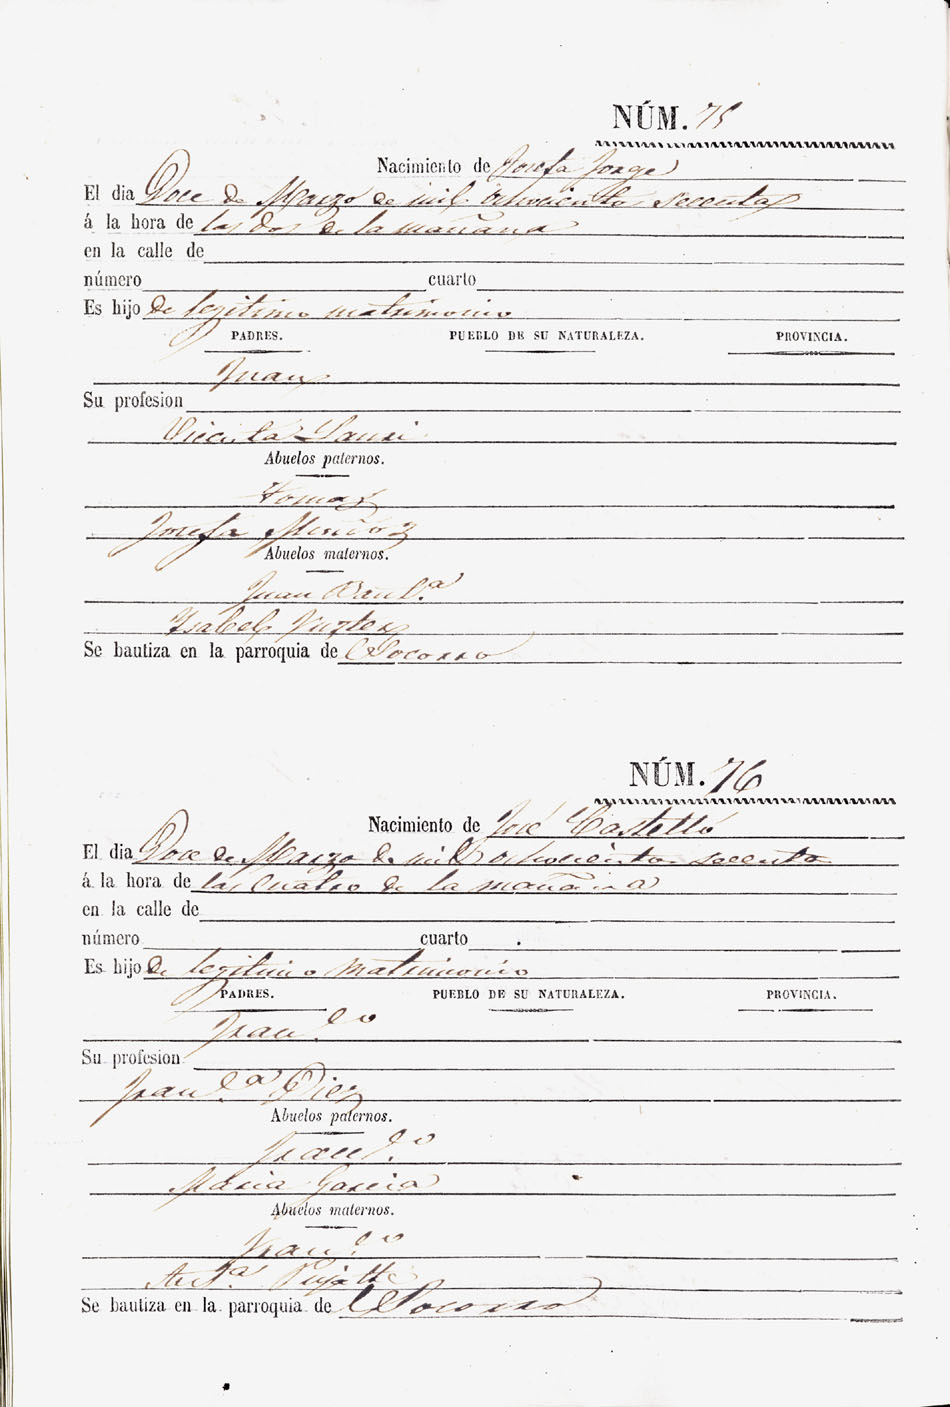 NÚM. 75
Nacimiento de Josefa Jorge
El dia Doce de Marzo de mil ochocientos secenta
á la hora de las dos de la mañana
en la calle de
número cuarto
Es hijo de legitimo matrimonio
PADRES. PUEBLO DE SU NATURALEZA. PROVINCIA.
Juan
Su profesion
Vicenta
Abuelos paternos.
Tomas
Josefa Muñoz
Abuelos maternos.
Juan Baut.ª
Ysabel
Se bautiza en la parroquia de Socorro
NÚM. 76
Nacimiento de José Castelló
El dia Doce de Marzo de mil ochocientos secenta
á la hora de las cuatro de la mañana
en la calle de
número cuarto
Es hijo de legitimo matrimonio
PADRES. PUEBLO DE SU NATURALEZA. PROVINCIA.
Fran.co
Su profesion
Fran.ca Diez
Abuelos paternos.
Fran.co
Maria Garcia
Abuelos maternos.
Fran.co
Ant.ª
Se bautiza en la parroquia de Socorro